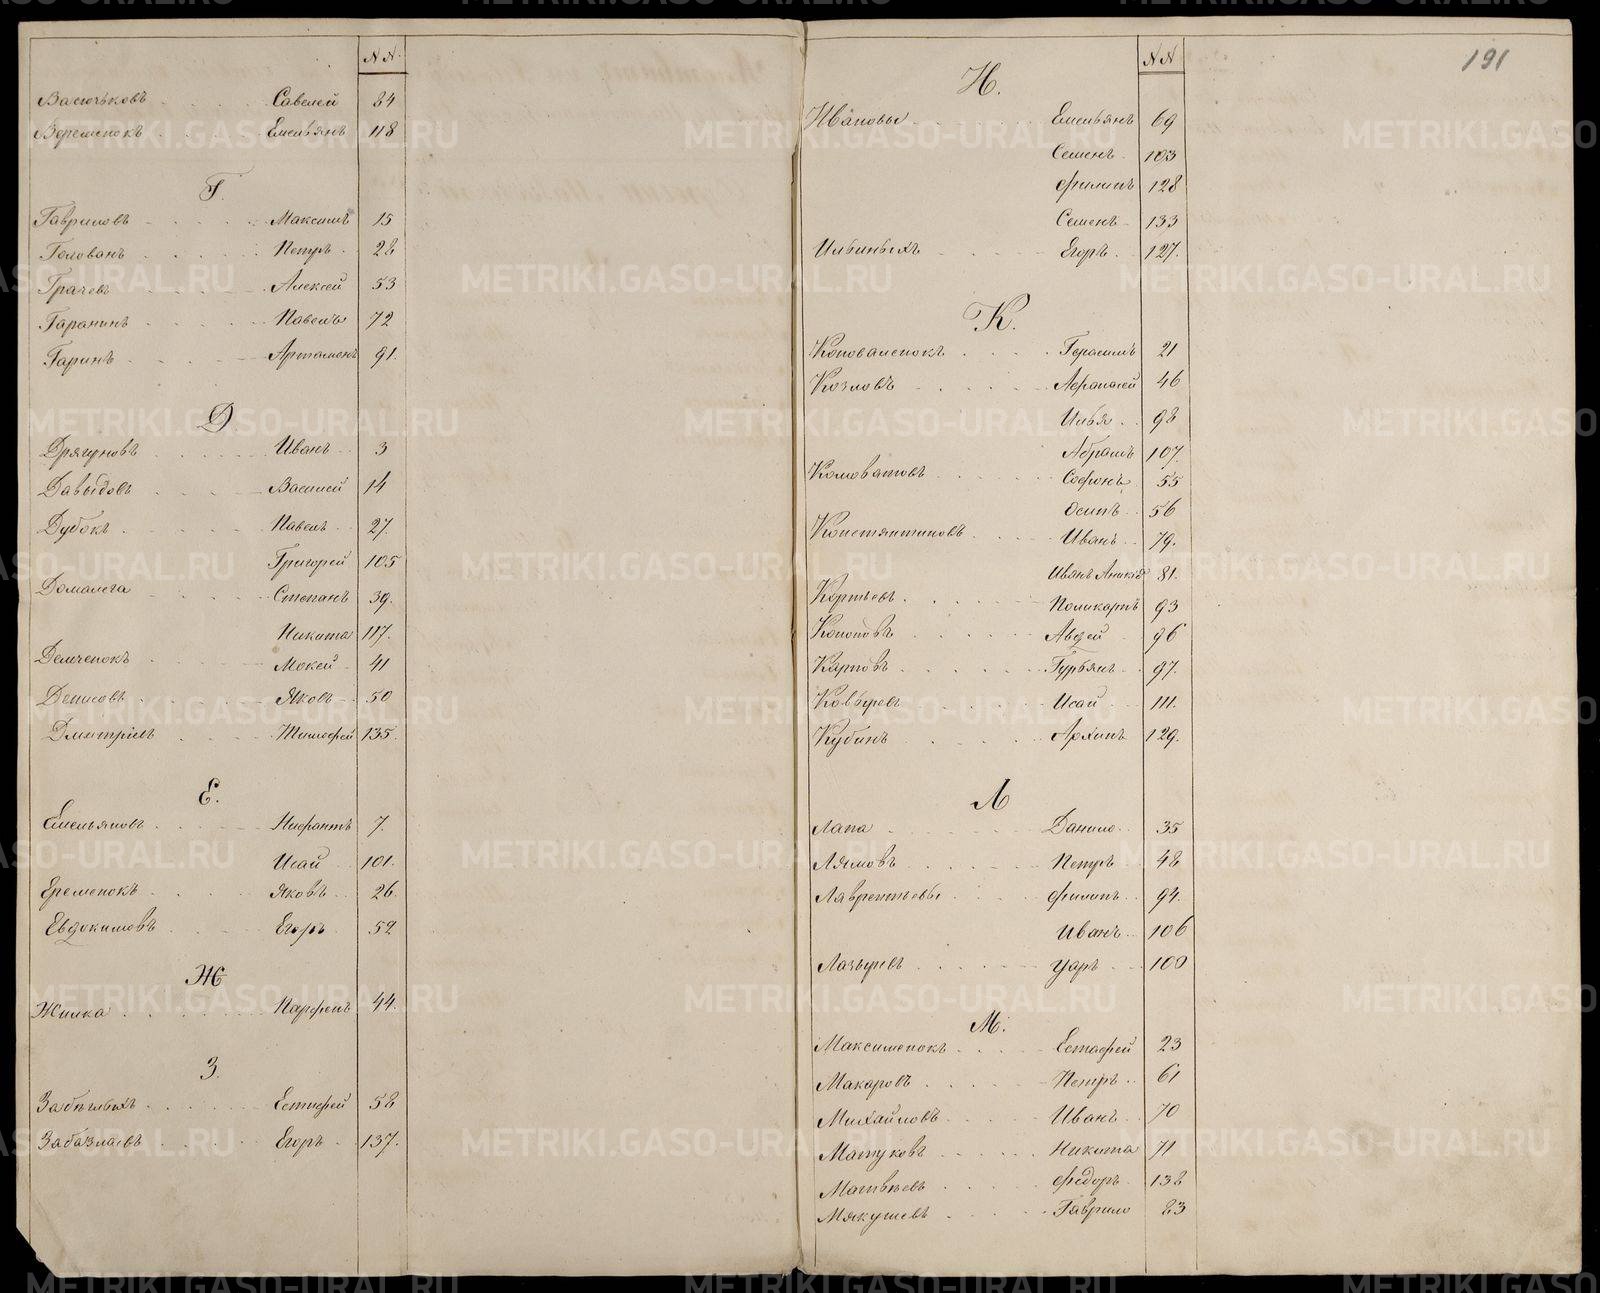 N N.
Васючьковъ . . . . Савелей 84
Веременокъ . . . . Емельянъ 118
Г.
Гавриловъ . . . . Максимъ 15
Голованъ . . . . Петръ 28
Грачевъ . . . . Алексей 53
Гаранинъ . . . . Павелъ 72
Гаринъ . . . . Артамонъ 91.
Д
Дрягуновъ . . . . Иванъ 3
Давыдовъ . . . . Василей 14
Дубокъ . . . . Павелъ 27.
Григорей 105
Домалега . . . . Степанъ 39.
Никита 117.
Демченокъ . . . . Мокей 41
Денисовъ . . . . Яковъ 50
Дмитріевъ . . . . Тимофей 135.
Е.
Емельяновъ . . . . Нифантъ 7.
Исай 101.
Еременокъ . . . . Яковъ 26.
Евдокимовъ . . . . Егоръ 52
Ж
Жилка . . . . Парфенъ 44.
З.
Забѣглыхъ . . . . Естифей 58
Забазлаевъ . . . . Егоръ 137.
191
N N
И.
Ивановы . . . . Емельянъ 69
Семенъ 103
Филипъ 128
Семенъ 133
Ильиныхъ . . . . Егоръ 127.
К.
Коноваленокъ . . . . Герасимъ 21
Козловъ . . . . Афанасей 46
Илья 98
Абрамъ 107
Коловатовъ . . . . Софонъ 55
Осипъ 56
Константиновъ . . . . Иванъ 79.
Иванъ Аникѣ 81.
Картьевъ . . . . Поликарпъ 93
Кононовъ . . . . Авдей 96
Карповъ . . . . Гурьянъ 97.
Ковыревъ . . . . Исай 111.
Кубинъ . . . . Архипъ 129.
Л
Лапа . . . . Данило 35
Лямовъ . . . . Петръ 48
Лаврентьевы . . . . Филипъ 94.
Иванъ 106
Лазыревъ . . . . Уаръ 100
М.
Максименокъ . . . . Естафей 23
Макаровъ . . . . Петръ 61
Михайловъ . . . . Иванъ 70
Матуковъ . . . . Никита 71
Матвѣевъ . . . . Федоръ 138
Мякушевъ . . . . Гаврило 83
METRIKI.GASO-URAL.RU